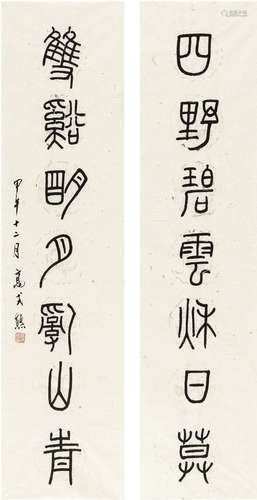 四野碧雲秌日莫
雙谿朙月亂山青
甲午十二月高式熊